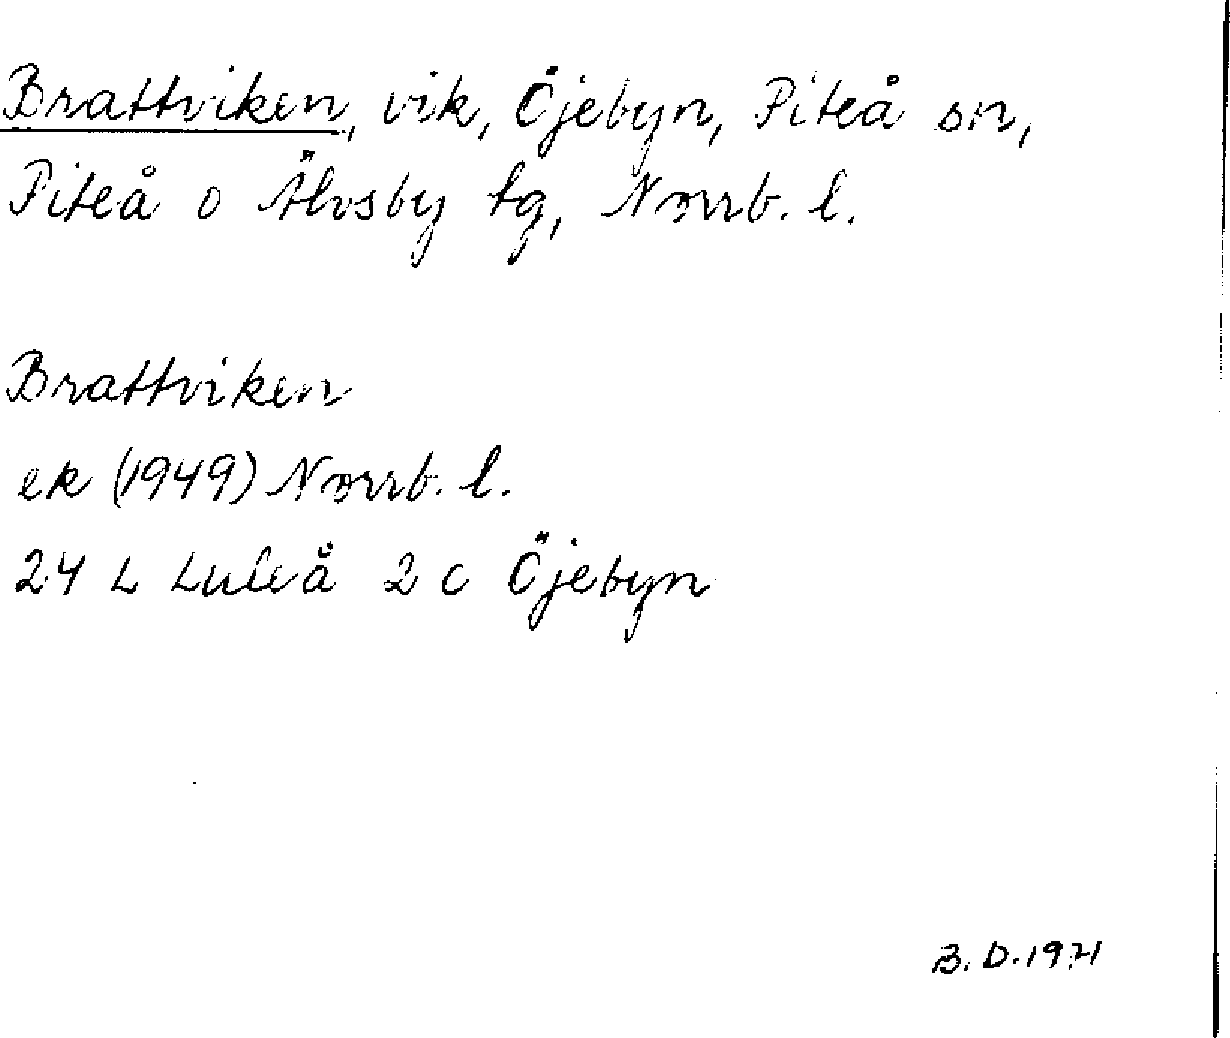 Brattviken, vik, Öjebyn, Piteå sn,
Piteå o Älvsby tg, Norrb. l.
Brattviken
ek (1949) Norrb. l.
24 L Luleå 2 c Öjebyn
B. D. 1971